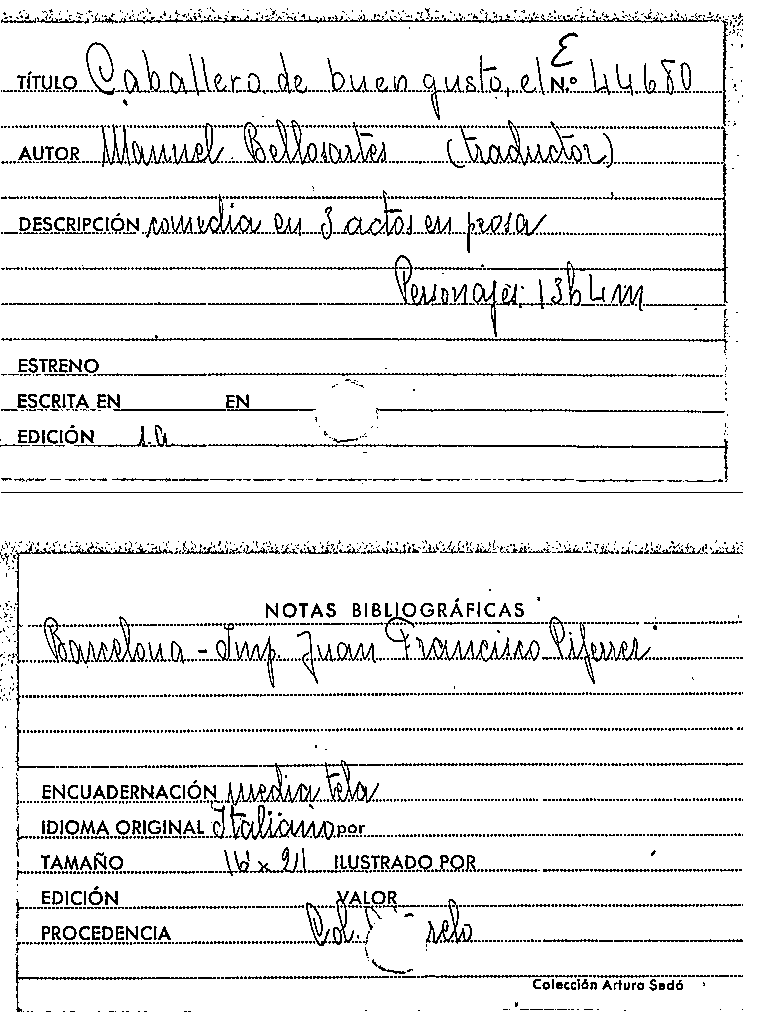 E
TÍTULO Caballero de buen gusto, el N.º 44680
AUTOR Manuel Bellosartes (traductor)
DESCRIPCIÓN comedia en 3 actos en prosa
Personajes: 13h 4m
ESTRENO
ESCRITA EN EN
EDICIÓN s.a
NOTAS BIBLIOGRÁFICAS
Barcelona - Imp. Juan Francisco Piferrer
ENCUADERNACIÓN media tela
IDIOMA ORIGINAL Italiano por
TAMAÑO x 21 ILUSTRADO POR
EDICIÓN VALOR
PROCEDENCIA Col.
Colección Arturo Sedó